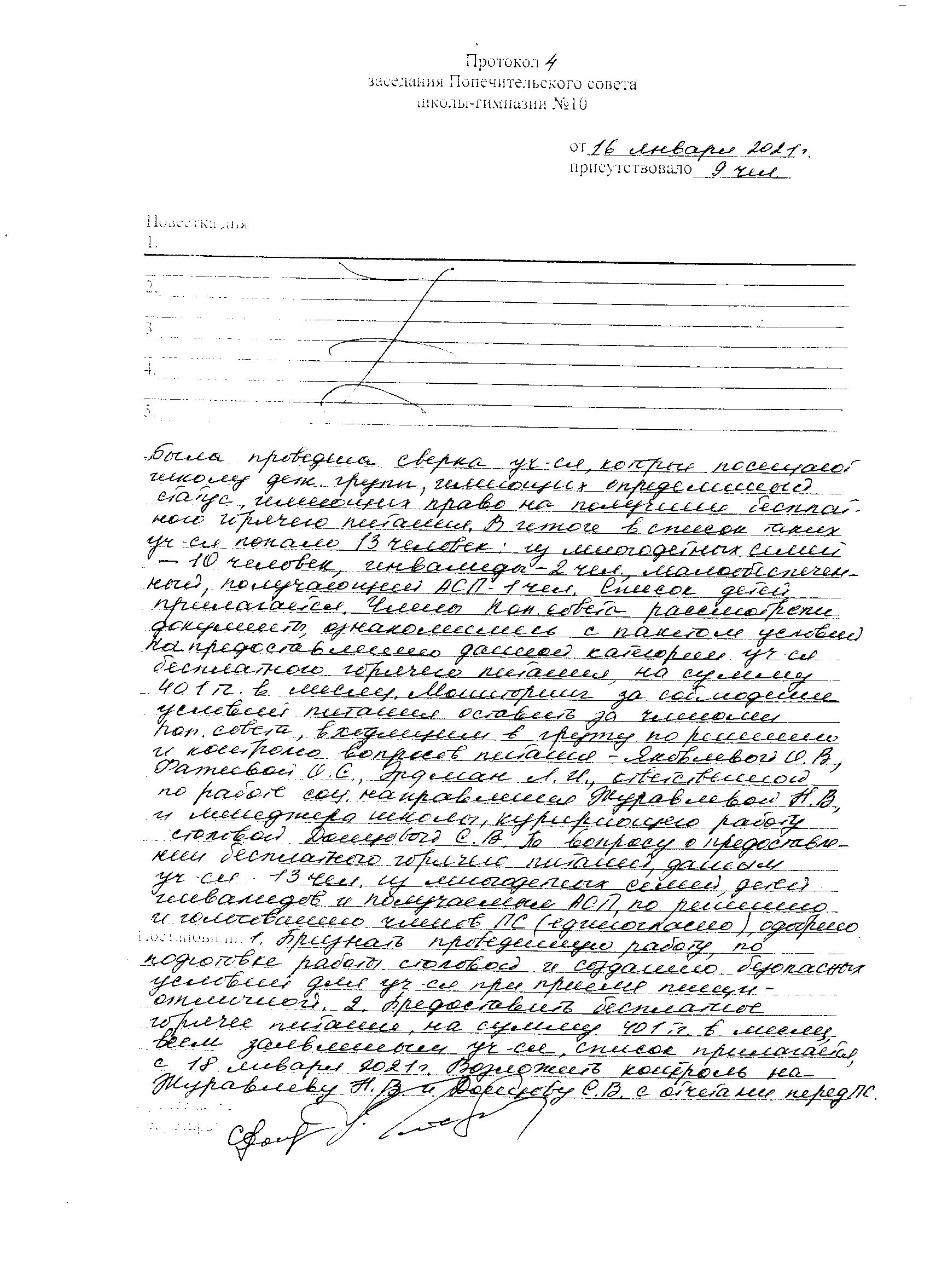 Протокол 4
заседания Попечительского совета
школы-гимназии №10
от 16 января 2021г.
присутствовало 9 чел
Повестка дня
1.
2.
3
4.
5.
Была проведена сверка уч-ся, которые посещают
школу деж. групп, имеющих определенный
статус, имеющих право на получение бесплат-
ного горячего питания. В итоге в список таких
уч-ся попало 13 человек: из многодетных семей
– 10 человек, инвалиды – 2 чел, малообеспечен-
ный, получающий АСП - 1 чел. Список детей
прилагается. Члены Поп. совета рассмотрели
документы, ознакомились с пакетом условий
на предоставление данной категории уч-ся
бесплатного горячего питания, на сумму
401 тг. в месяц. Мониторинг за соблюдение
условий питания оставить за членами
поп. совета, входящим в группу по решению
и контролю вопросов питания – Яковлевой О.В.,
О.С., Эрдман Л.И., ответственной
по работе соц. направления Журавлевой Н.В.,
и менеджера школы, курирующего работу
столовой Донцовой С.В. По вопросу о предоставле-
нии бесплатного горячего питания, данным
уч-ся - 13 чел. из многодетных семей, детей
инвалидов и получаемым АСП, по решению
и голосованию членов ПС (единогласно), одобрено
Постановили: 1. Признать проведенную работу, по
подготовке работы столовой и созданию безопасных
условий для уч-ся при приеме пищи -
отличной. 2. Предоставить бесплатное
горячее питание, на сумму 401 тг. в месяц,
всем заявленным уч-ся, список прилагается,
с 18 января 2021г. Возложить контроль на
Журавлеву Н.В. и Донцову С.В. с отчетами перед ПС.